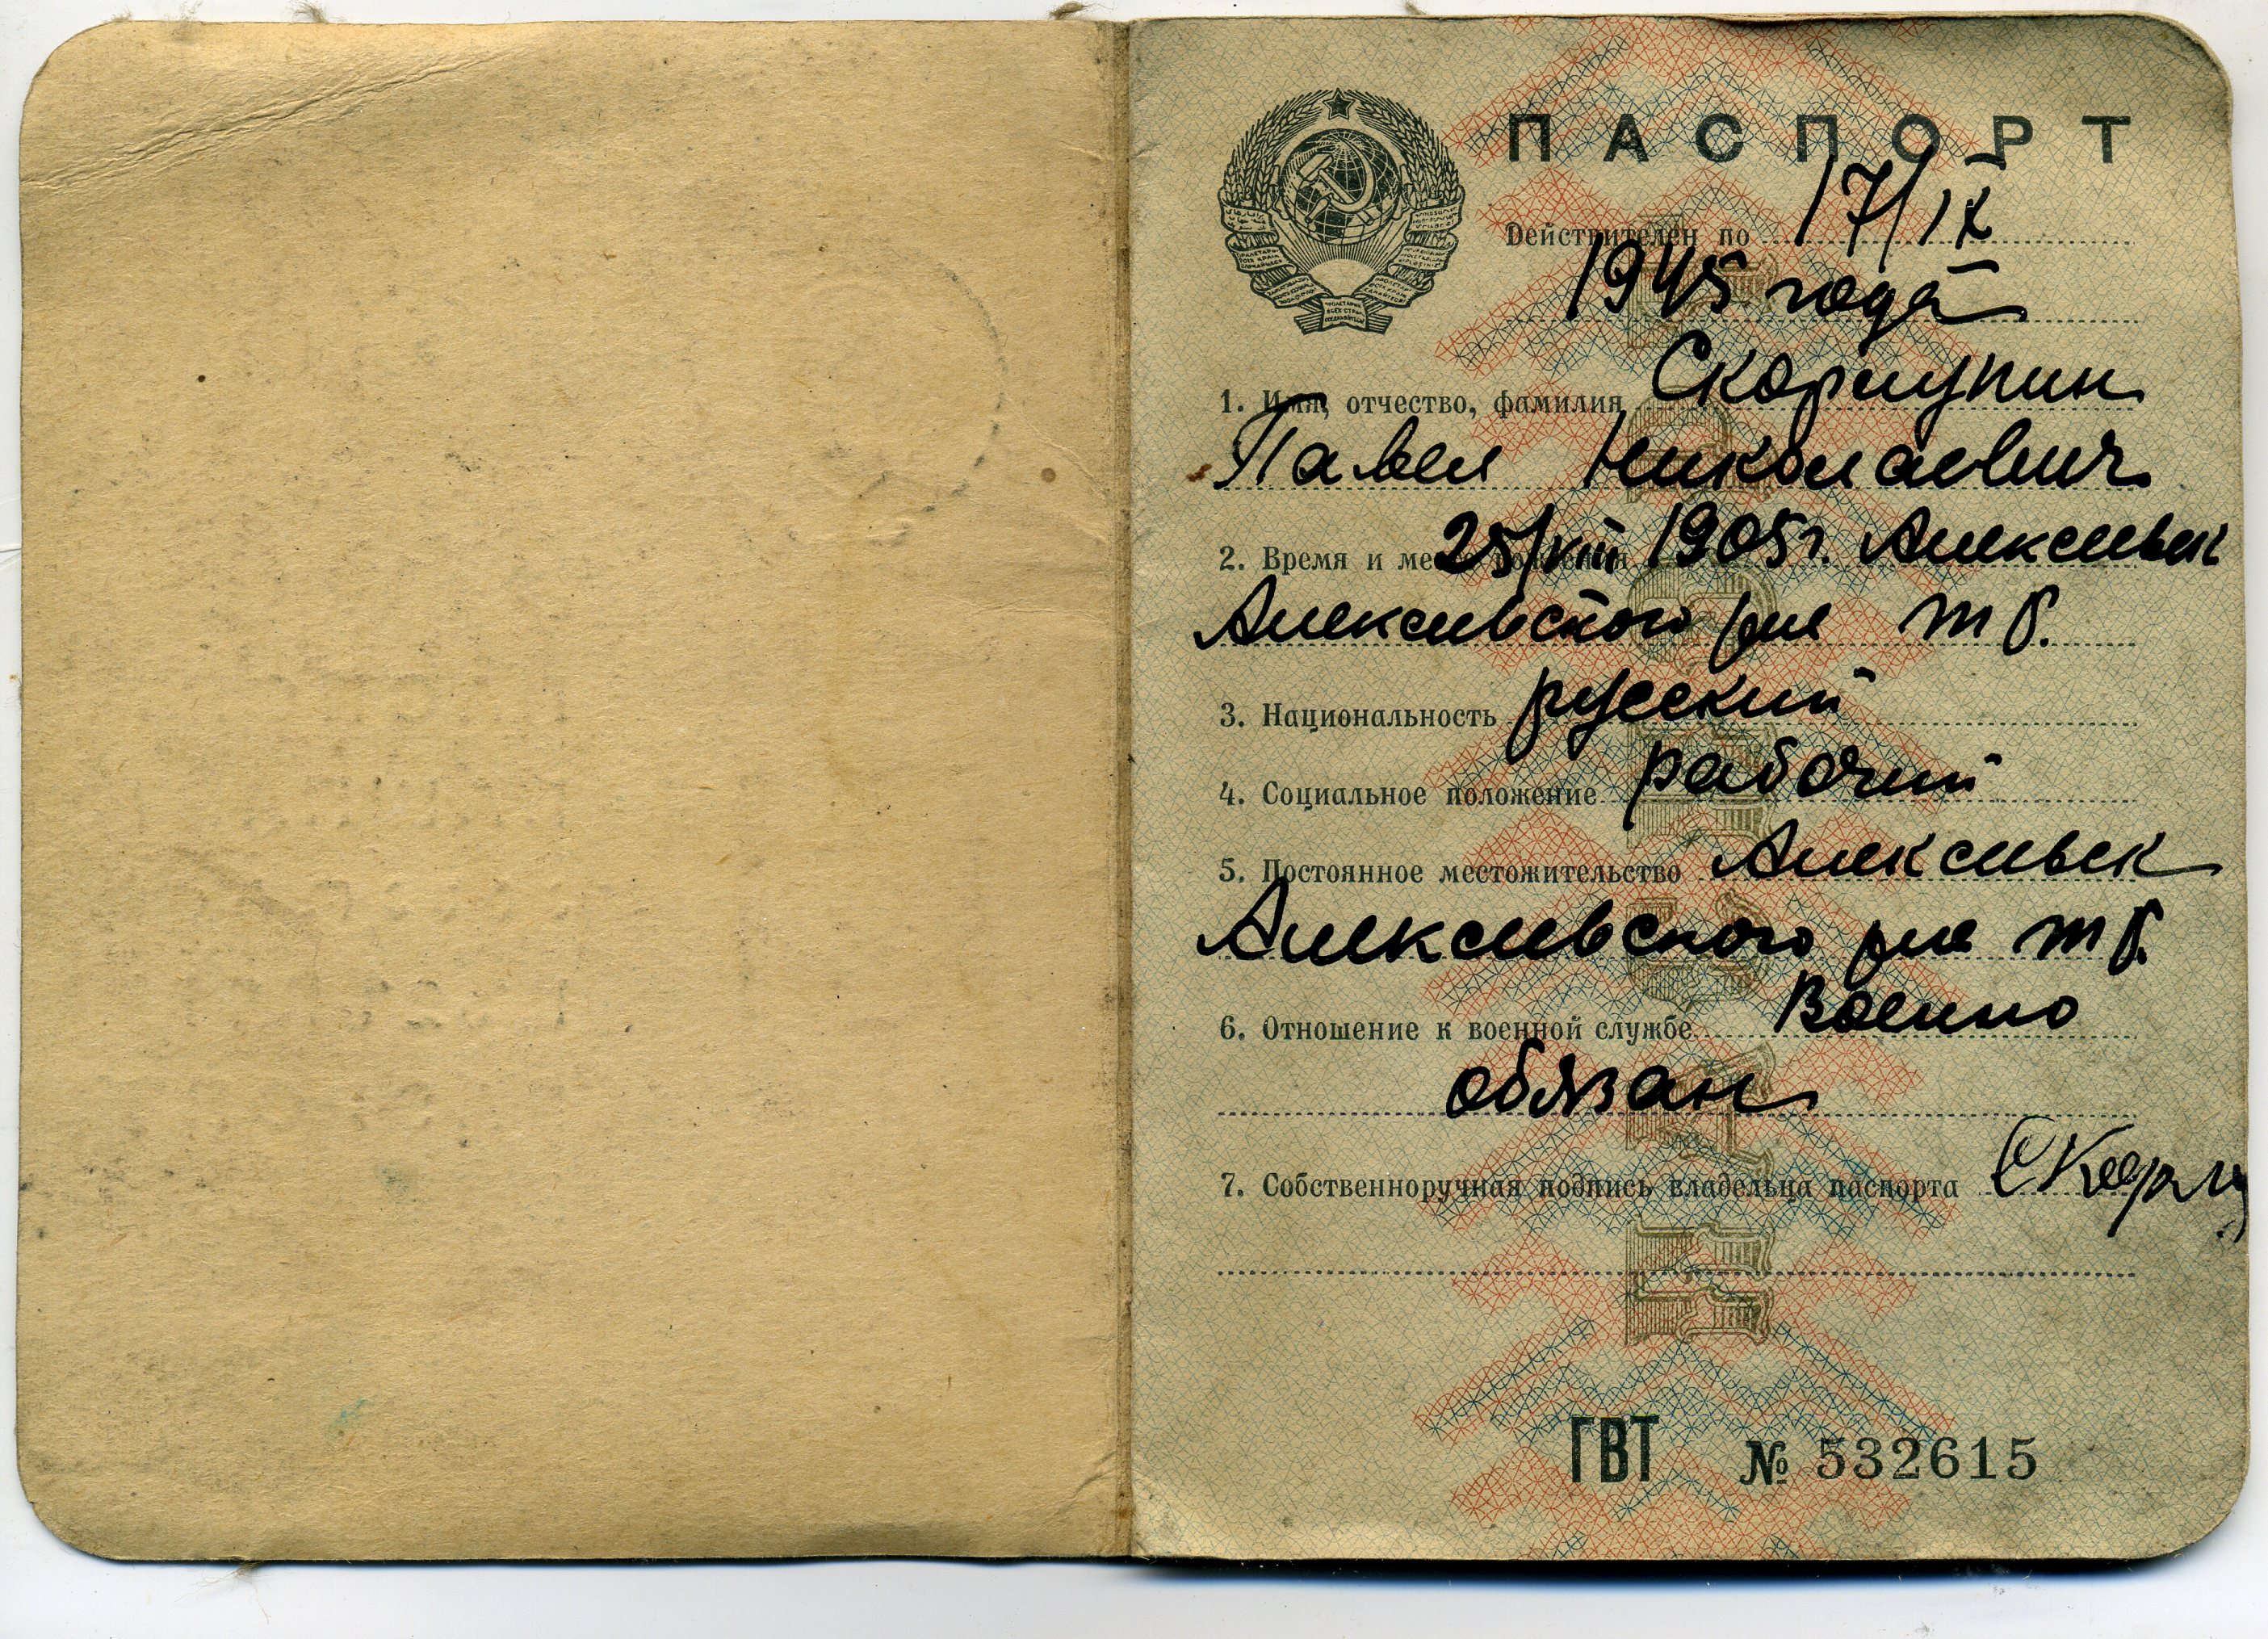 ПАСПОРТ
Действителен по 17/IX
1945 года
1. Имя, отчество, фамилия Скорлупин
Павел Николаевич
2. Время и место рождения 25/VIII 1905 г. Алексеевск
Алексеевского р-на
3. Национальность русский
4. Социальное положение рабочий
5. Постоянное местожительство Алексеевск
Алексеевского р-на
6. Отношение к военной службе Военно
обязан
7. Собственноручная подпись владельца паспорта Скорлу
ГВТ № 532615
ПАСПОРТ